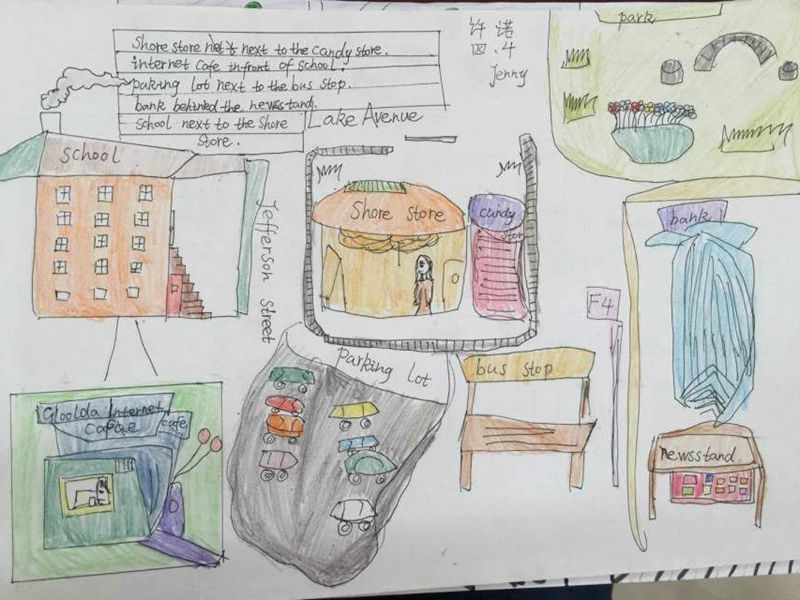 park
许诺
四.4
Jenny
Shore store next to the candy store.
internet cafe infront of school.
paking lot next to the bus stop.
bank behinded the newsstand.
school next to the shore
store.
Lake Avenue
School
Jefferson street
Shore store
candy
store
bank
F4
parking lot
bus stop
Gloolda Internet
Cafae
cafe
Newsstand